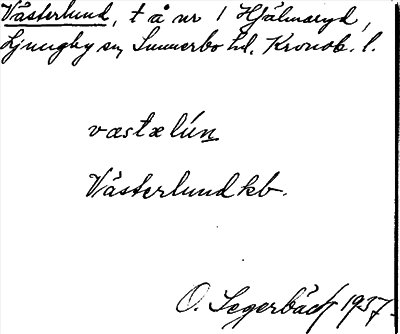 Västerlund, t å nr 1 Hjälmaryd,
Ljungby sn, Sunnerbo hd. Kronob. l.
væstælún
Västerlund kb.
O. Segerbäck 1937.